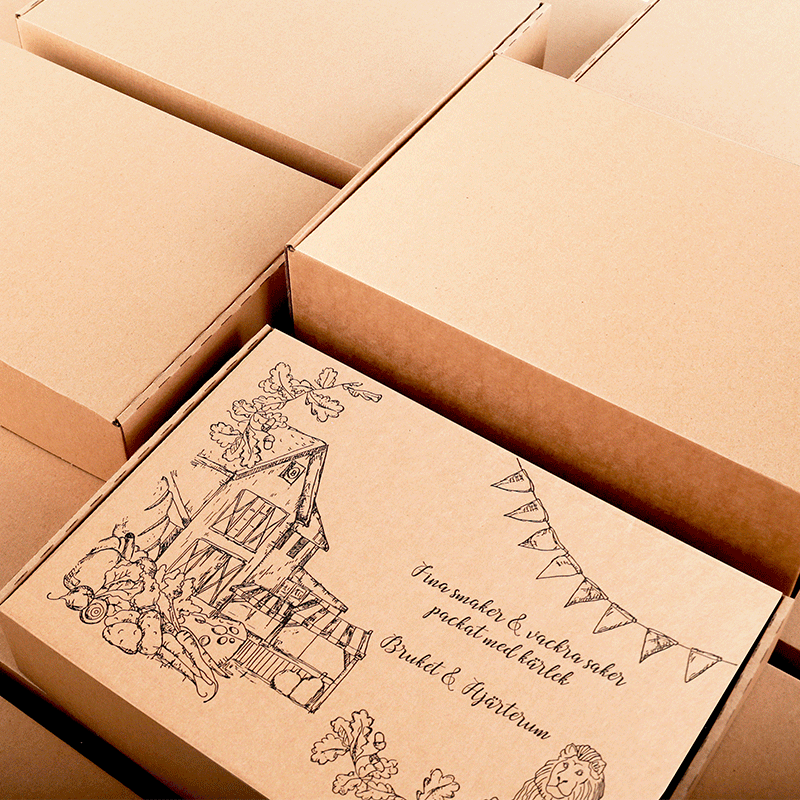 Fina smaker & vackra saker
packat med kärlek
Bruket & Hjärterum